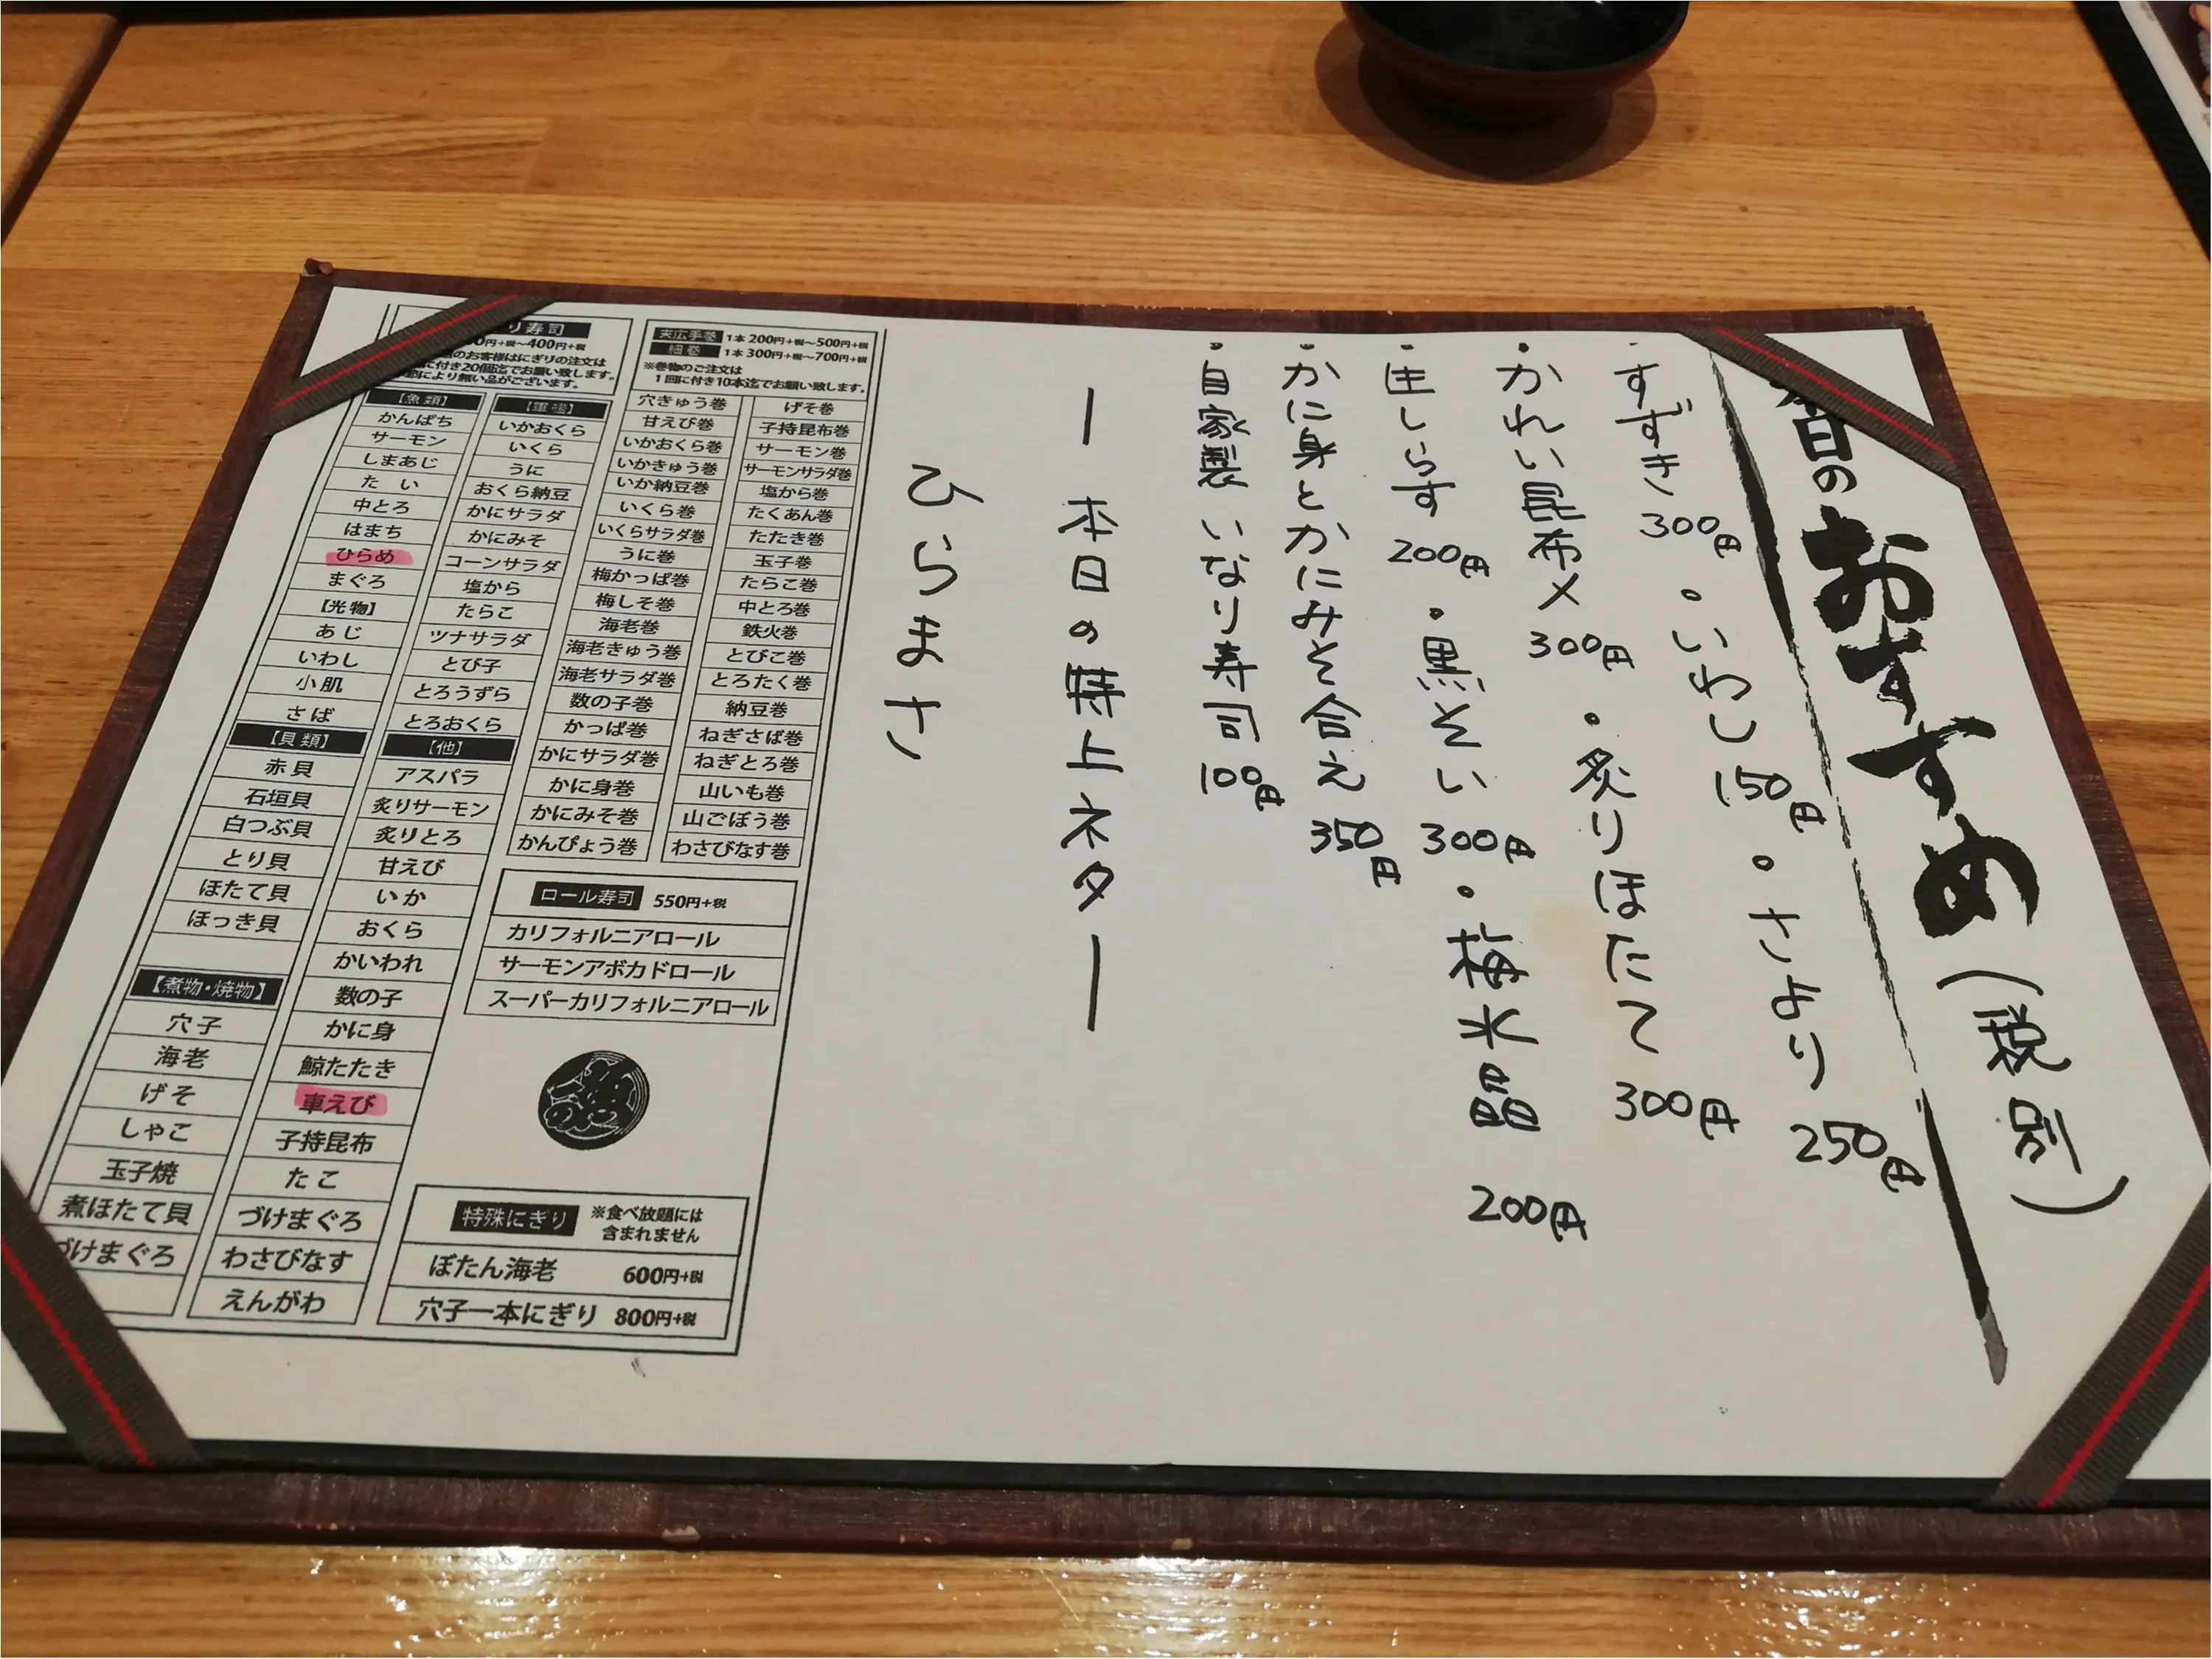 日のおすすめ(税別)
・すずき300円 ・いわし150円 ・さより250円
・かれい昆布〆300円 ・炙りほたて300円
・生しらす200円 ・黒そい300円 ・梅水晶200円
・かに身とかにみそ合え350円
・自家製いなり寿司100円
ー本日の特上ネター
ひらまさ
り寿司
0円+税〜400円+税
題のお客様はにぎりの注文は
に付き20個迄でお願い致します。
により無い品がございます。
【魚類】
かんぱち
サーモン
しまあじ
たい
中とろ
はまち
ひらめ
まぐろ
【光物】
あじ
いわし
小肌
さば
【貝類】
赤貝
石垣貝
白つぶ貝
とり貝
ほたて貝
ほっき貝
【煮物・焼物】
穴子
海老
げそ
しゃこ
玉子焼
煮ほたて貝
づけまぐろ
【軍艦】
いかおくら
いくら
うに
おくら納豆
かにサラダ
かにみそ
コーンサラダ
塩から
たらこ
ツナサラダ
とび子
とろうずら
とろおくら
【他】
アスパラ
炙りサーモン
炙りとろ
甘えび
いか
おくら
かいわれ
数の子
かに身
鯨たたき
車えび
子持昆布
たこ
づけまぐろ
わさびなす
えんがわ
末広手巻 1本200円+税〜500円+税
細巻 1本300円+税〜700円+税
※巻物のご注文は
1回に付き10本迄でお願い致します。
穴きゅう巻
甘えび巻
いかおくら巻
いかきゅう巻
いか納豆巻
いくら巻
いくらサラダ巻
うに巻
梅かっぱ巻
梅しそ巻
海老巻
海老きゅう巻
海老サラダ巻
数の子巻
かっぱ巻
かにサラダ巻
かに身巻
かにみそ巻
かんぴょう巻
げそ巻
子持昆布巻
サーモン巻
サーモンサラダ巻
塩から巻
たくあん巻
たたき巻
玉子巻
たらこ巻
中とろ巻
鉄火巻
とびこ巻
とろたく巻
納豆巻
ねぎさば巻
ねぎとろ巻
山いも巻
山ごぼう巻
わさびなす巻
ロール寿司 550円+税
カリフォルニアロール
サーモンアボカドロール
スーパーカリフォルニアロール
特殊にぎり ※食べ放題には
含まれません
ぼたん海老 600円+税
穴子一本にぎり 800円+税